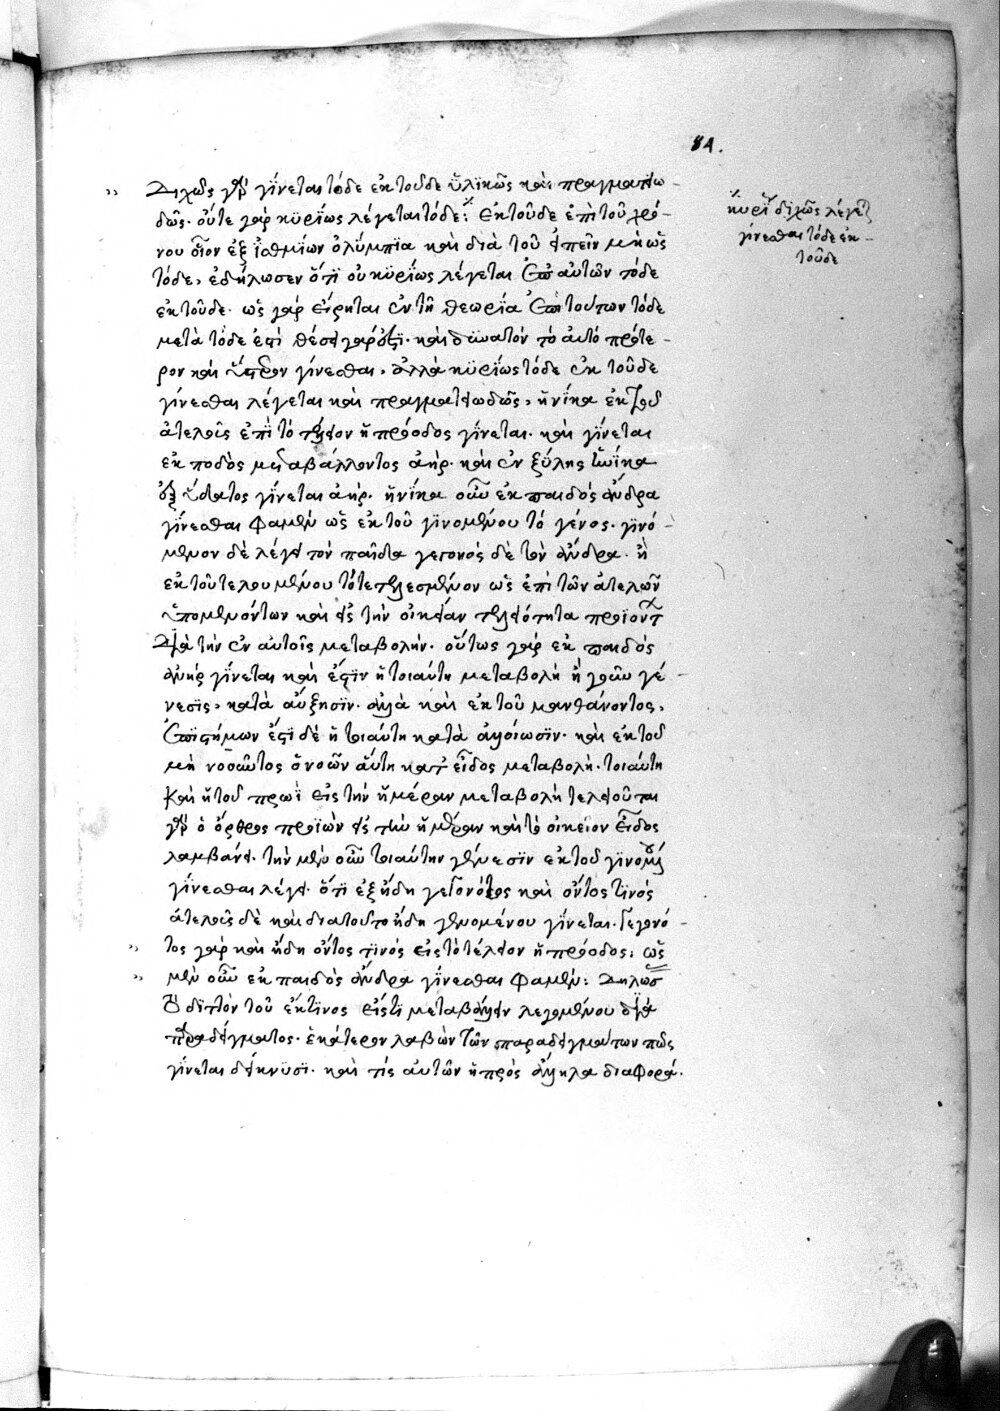 84.
Διχῶς γὰρ γίνεται τόδε ἐκ τοῦδε ὑλικῶς καὶ πραγματιω-
δῶς. οὔτε γὰρ κυρίως λέγεται τόδε: ἐκ τοῦδε ἐπὶ τοῦ χρό-
νου οἷον ἐξ ἰσθμίων ὀλύμπια καὶ διὰ τοῦ εἰπεῖν μὴ ὡς
τόδε, ἐδήλωσεν ὅτι οὐ κυρίως λέγεται ἐπ αὐτῶν τόδε
ἐκ τοῦδε. ὡς γὰρ εἴρηται ἐν τῇ θεωρία ἐπὶ τούτων τόδε
μετὰ τόδε ἐστὶ θέσει γὰρ ἐστι. καὶ δυνατόν τὸ αὐτὸ πρότε-
ρον καὶ ὕστερον γίνεσθαι. ἀλλὰ κυρίως τόδε ἐκ τοῦδε
γίνεσθαι λέγεται καὶ πραγματειωδῶς, ἡνίκα ἐκ τοῦ
ἀτελοῦς ἐπὶ τὸ τέλειον ἡ πρόοδος γίνεται. καὶ γίνεται
ἐκ ποδὸς μεταβάλλοντος ἀήρ. καὶ ἐν ξύλης
ἐξ ὕδατος γίνεται ἀήρ. ἡνίκα οὖν ἐκ παιδὸς ἄνδρα
γίνεσθαι φαμὲν ὡς ἐκ τοῦ γινομένου τὸ γένος. γινό-
μενον δὲ λέγει τὸν παῖδα γεγονὸς δὲ τὸν ἄνδρα. ἢ
ἐκ τοῦ τελουμένου τὸ τετελεσμένον ὡς ἐπὶ τῶν ἀτελῶν
ὑπομενόντων καὶ εἰς τὴν οἰκείαν τελειότητα προϊόντ
Διὰ τὴν ἐν αὐτοῖς μεταβολήν. οὕτως γὰρ ἐκ παιδὸς
ἀνὴρ γίνεται καὶ ἔστιν ἡ τοιαύτη μεταβολὴ ἢ γοῦν γέ-
νεσις, κατὰ αὔξησιν. ἀλλὰ καὶ ἐκ τοῦ μανθάνοντος,
ἐπιστήμων ἔστι δὲ ἡ τοιαύτη κατὰ ἀλοίωσιν. καὶ ἐκ τοῦ
μὴ νοοῦντος ὁ νοῶν αὕτη κατ εἶδος μεταβολή. τοιαύτη
καὶ ἡ τοῦ πρωῒ εἰς τὴν ἡμέραν μεταβολὴ τελειοῦται
γὰρ ὁ ὄρθρος προϊὼν εἰς τὴν ἡμέραν καὶ τὸ οἰκεῖον εἶδος
λαμβάνει. τὴν μὲν οὖν τοιαύτην γένεσιν ἐκ τοῦ γινομέ
γίνεσθαι λέγει. ὅτι ἐξ ἤδη γεγονότος καὶ ὄντος τινὸς
ἀτελοῦς δὲ καὶ διὰ τοῦτο ἤδη γενομένου γίνεται. Γεγονό-
τος γὰρ καὶ ἤδη ὄντος τινός εἰς τὸ τέλειον ἡ πρόοδος: ὡς
μὲν οὖν ἐκ παιδὸς ἄνδρα γίνεσθαι φαμέν: Δηλώσ
διττὸν τοῦ ἔκ τινος εἰς τι μεταβάλλειν λεγομένου διὰ
παραδείγματος. ἑκάτερον λαβὼν τῶν παραδειγμάτων πῶς
γίνεται δείκνυσι. καὶ τίς αὐτῶν ἡ πρὸς ἄλληλα διαφορά.
κυρί διχῶς λέγετ
γίνεσθαι τόδε ἐκ-
τοῦδε